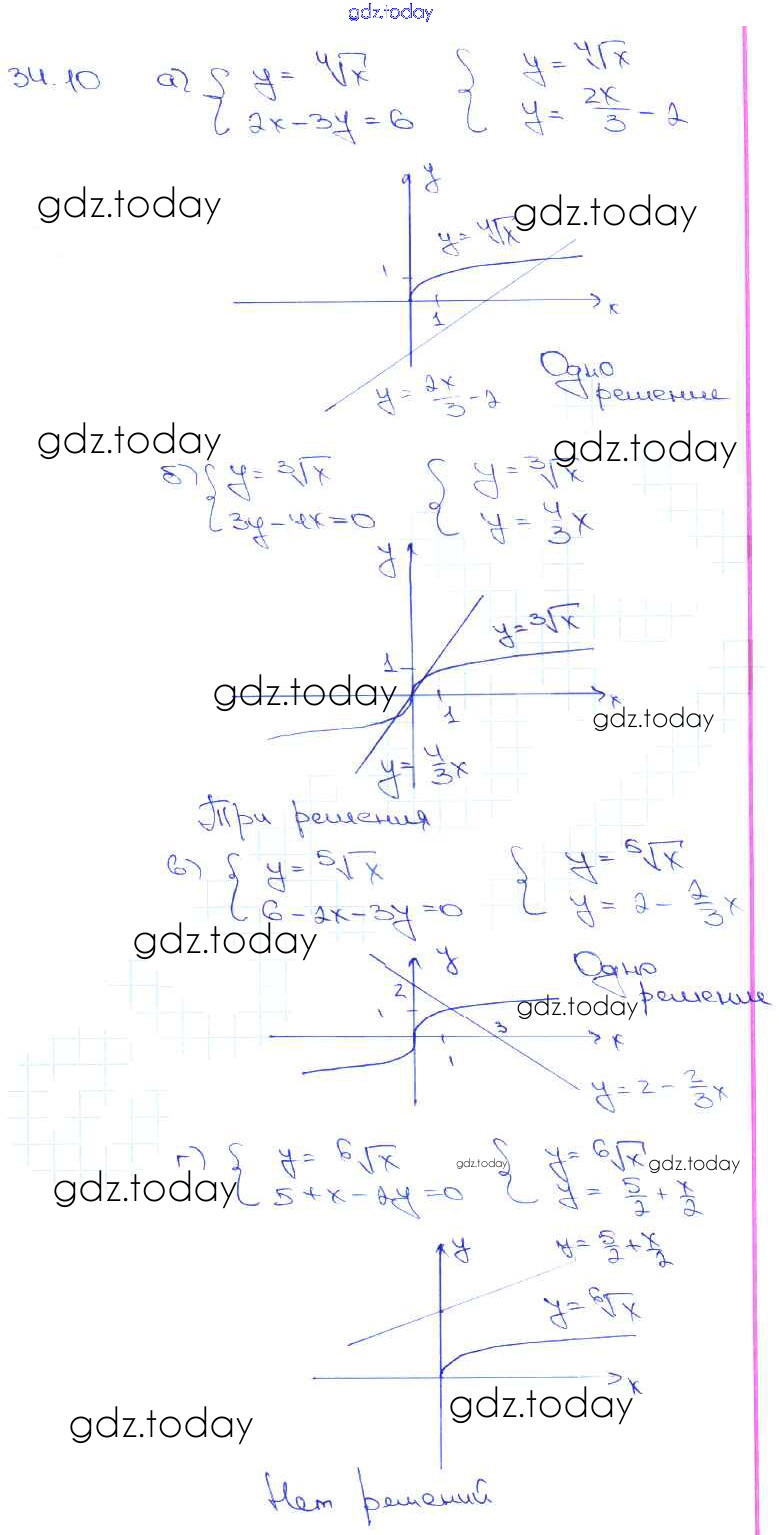 gdz.today
34.10 а) { y = ⁴√x { y = ⁴√x
2x - 3y = 6 y = 2x/3 - 2
y
gdz.today gdz.today
y = ⁴√x
1
x
1
Одно
y = 2x/3 - 2 решение
gdz.today gdz.today
б) { y = ³√x { y = ³√x
3y - 4x = 0 y = 4/3 x
y
y = ³√x
1
gdz.today x
1 gdz.today
y = 4/3 x
Три решения
в) { y = ⁵√x { y = ⁵√x
6 - 2x - 3y = 0 y = 2 - 2/3 x
gdz.today
y Одно
2 решение
1 gdz.today
3
x
1
y = 2 - 2/3 x
г) { y = ⁶√x gdz.today { y = ⁶√x gdz.today
gdz.today 5 + x - 2y = 0 y = 5/2 + x/2
y y = 5/2 + x/2
y = ⁶√x
x
gdz.today gdz.today
Нет решений